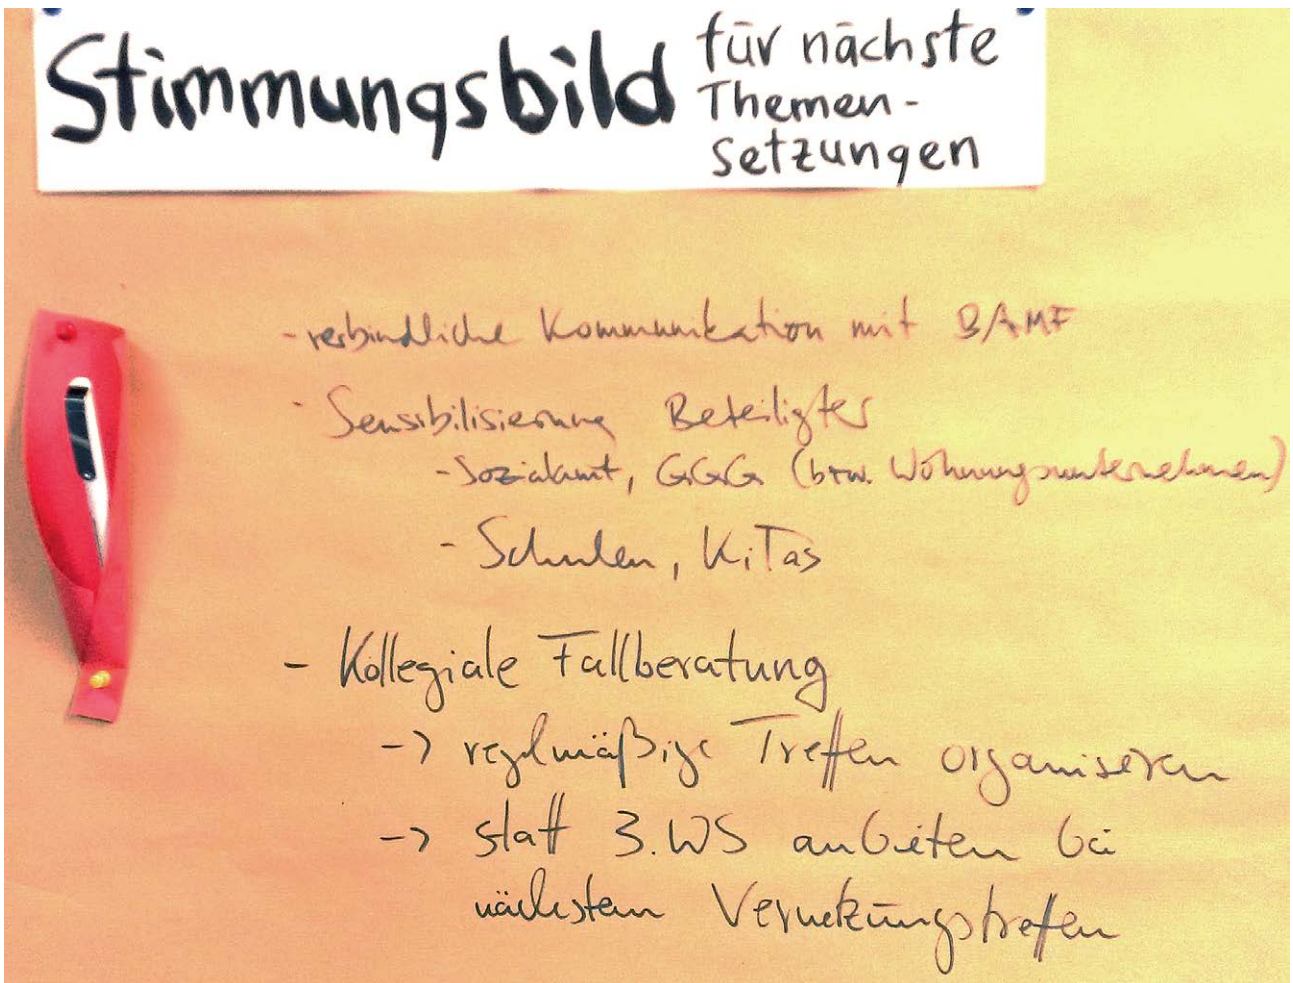 Stimmungsbild für nächste
Themen-
setzungen
- verbindliche Kommunikation mit BAMF
- Sensibilisierung Beteiligter
- Sozialamt, GGG (bzw. Wohnungsunternehmen)
- Schulen, KiTas
- Kollegiale Fallberatung
-> regelmäßige Treffen organisieren
-> statt 3. WS anbieten bei
nächstem Vernetzungstreffen